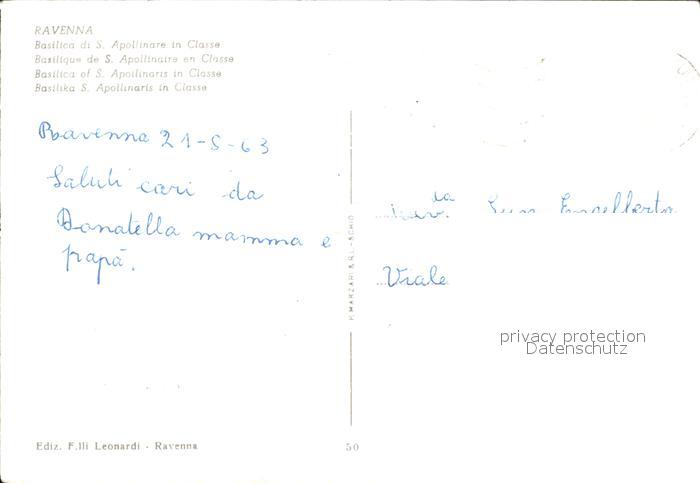 RAVENNA
Basilica di S. Apollinare in Classe
Basilique de S. Apollinaire en Classe
Basilica of S. Apollinaris in Classe
Basilika S. Apollinaris in Classe
Ravenna 21-5-63
Saluti cari da
Donatella mamma e
papà.
P. MARZARI S.R.L. - SCHIO
Viale
privacy protection
Datenschutz
Ediz. F.lli Leonardi - Ravenna
50